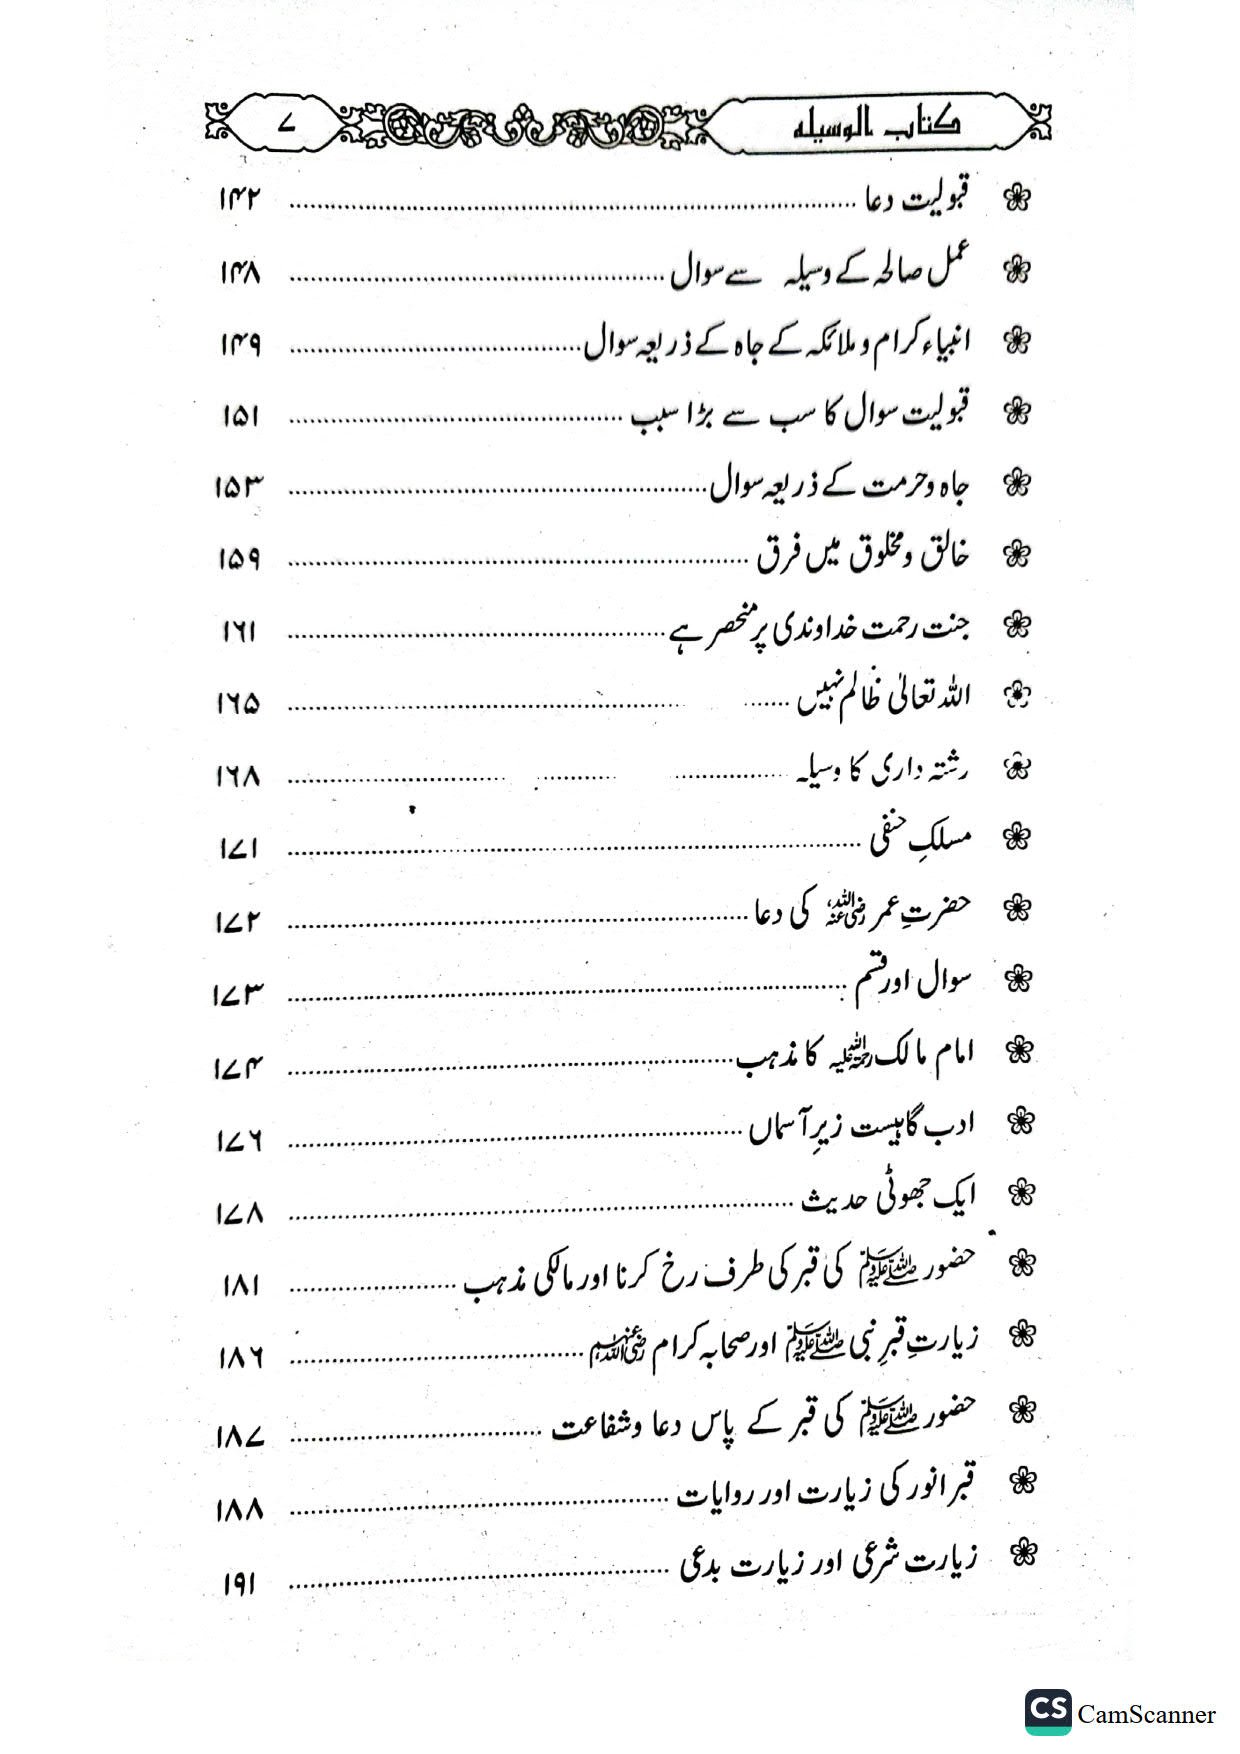 کتاب الوسیلہ ۷
قبولیت دعا ........ ۱۴۲
عمل صالحہ کے وسیلہ سے سوال ........ ۱۴۸
انبیاء کرام و ملائکہ کے جاہ کے ذریعہ سوال ........ ۱۴۹
قبولیت سوال کا سب سے بڑا سبب ........ ۱۵۱
جاہ وحرمت کے ذریعہ سوال ........ ۱۵۳
خالق ومخلوق میں فرق ........ ۱۵۹
جنت رحمت خداوندی پر منحصر ہے ........ ۱۶۱
اللہ تعالیٰ ظالم نہیں ........ ۱۶۵
رشتہ داری کا وسیلہ ........ ۱۶۸
مسلکِ حنفی ........ ۱۷۱
حضرتِ عمر رضی اللہ عنہ کی دعا ........ ۱۷۲
سوال اور قسم ........ ۱۷۳
امام مالک رحمۃ اللہ علیہ کا مذہب ........ ۱۷۴
ادب گاہیست زیرِ آسماں ........ ۱۷۶
ایک جھوٹی حدیث ........ ۱۷۸
حضور ﷺ کی قبر کی طرف رخ کرنا اور مالکی مذہب ........ ۱۸۱
زیارتِ قبرِ نبی ﷺ اور صحابہ کرام رضی اللہ عنہم ........ ۱۸۶
حضور ﷺ کی قبر کے پاس دعا وشفاعت ........ ۱۸۷
قبر انور کی زیارت اور روایات ........ ۱۸۸
زیارت شرعی اور زیارت بدعی ........ ۱۹۱
CS CamScanner